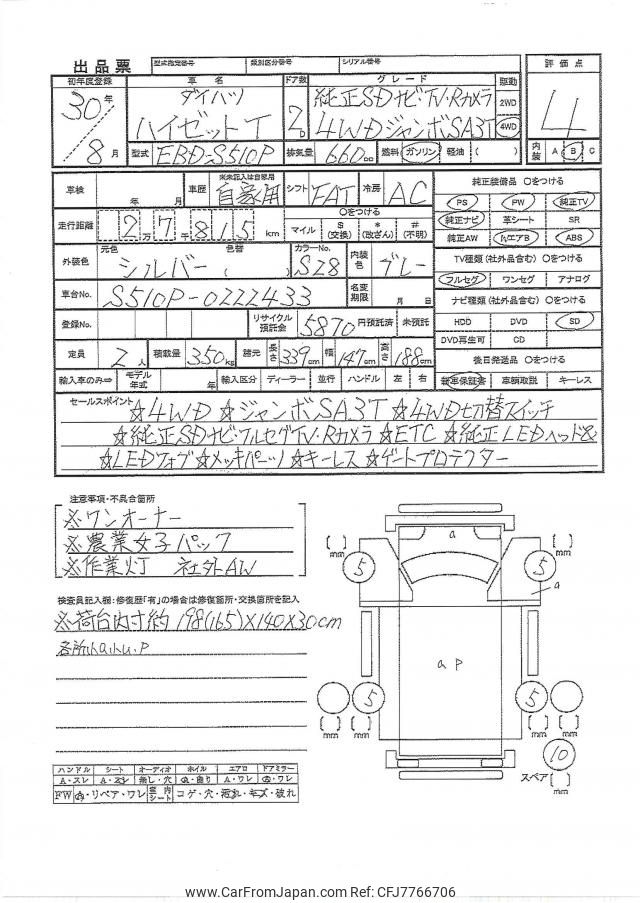 出品票 型式指定番号 類別区分番号 シリアル番号
初年度登録 車名 ドア数 グレード 駆動 評価点
30年 ダイハツ 2 純正SDナビ・TV・Rカメラ 2WD 4
8月 ハイゼットT 4WDジャンボSA3T 4WD
型式 EBD-S510P 排気量 660cc 燃料 ガソリン・軽油・( ) 内装 A B C
車検 年 月 車歴 ※未記入は自家用 自家用 シフト FAT 冷房 AC
走行距離 2万7千815km ○をつける マイル $(交換) *(改ざん) #(不明)
外装色 元色 シルバー 色替 ( ) カラーNo. S28 内装色 グレー
車台No. S510P-0222433 名変期限 月 日
登録No. リサイクル預託金 5870円預託済 未預託
定員 2人 積載量 350kg 諸元 長さ 339cm 幅 147cm 高さ 188cm
輸入車のみ⇒ モデル年式 年 輸入区分 ディーラー 並行 ハンドル 左 右
純正装備品 ○をつける
PS PW 純正TV
純正ナビ 革シート SR
純正AW エアB ABS
TV種類(社外品含む) ○をつける
フルセグ ワンセグ アナログ
ナビ種類(社外品含む) ○をつける
HDD DVD SD
DVD再生可 CD
後日発送品 ○をつける
新車保証書 車輌取説 キーレス
セールスポイント ☆4WD ☆ジャンボSA3T ☆4WD切替スイッチ
☆純正SDナビ・フルセグTV・Rカメラ ☆ETC ☆純正LEDヘッド&
☆LEDフォグ ☆メッキパーツ ☆キーレス ☆ゲートプロテクター
注意事項・不具合箇所
※ワンオーナー
※農業女子パック
※作業灯 社外AW
検査員記入欄:修復歴「有」の場合は修復箇所・交換箇所を記入
※荷台内寸約 198(165)×140×30cm
各所
a
[ ] mm 5 5 [ ] mm
a
a P
5 5
[ ] mm [ ] mm [ ] mm [ ] mm
10
スペア [ ] mm
ハンドル シート オーディオ ホイル エアロ ドアミラー
A・スレ A・スレ 無し・穴 A・曲り A・ワレ A・ワレ
FW A・リペア・ワレ 室内シート コゲ・穴・汚れ・キズ・破れ
www.CarFromJapan.com Ref: CFJ7766706